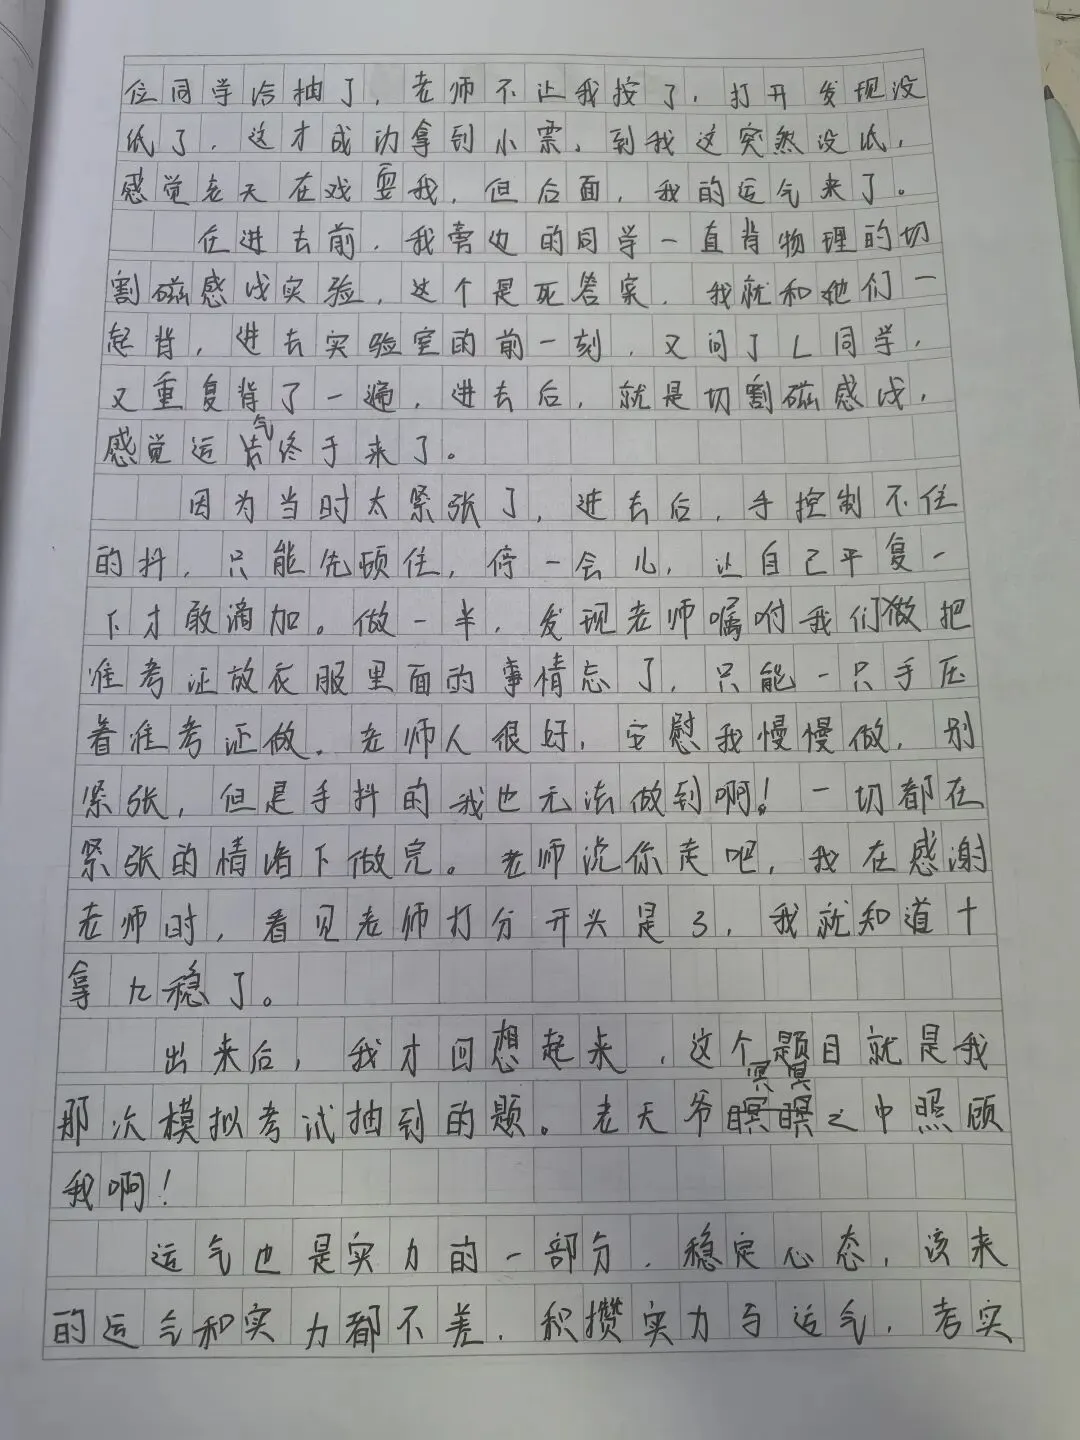 位同学给抽了，老师不让我按了，打开发现没
纸了，这才成功拿到小票，到我这突然没纸，
感觉老天在戏耍我，但后面，我的运气来了。
在进去前，我旁边的同学一直背物理的切
割磁感线实验，这个是死答案，我就和他们一
起背，进去实验室的前一刻，又问了L同学，
又重复背了一遍，进去后，就是切割磁感线，
感觉运气终于来了。
因为当时太紧张了，进去后，手控制不住
的抖，只能先顿住，停一会儿，让自己平复一
下才敢滴加。做一半，发现老师嘱咐我们做把
准考证放衣服里面的事情忘了，只能一只手压
着准考证做，老师人很好，安慰我慢慢做，别
紧张，但是手抖的我也无法做到啊！一切都在
紧张的情绪下做完。老师说你走吧，我在感谢
老师时，看见老师打分开头是3，我就知道十
拿九稳了。
出来后，我才回想起来，这个题目就是我
那次模拟考试抽到的题。老天爷冥冥之中照顾
我啊！
运气也是实力的一部分，稳定心态，该来
的运气和实力都不差，积攒实力与运气，考实